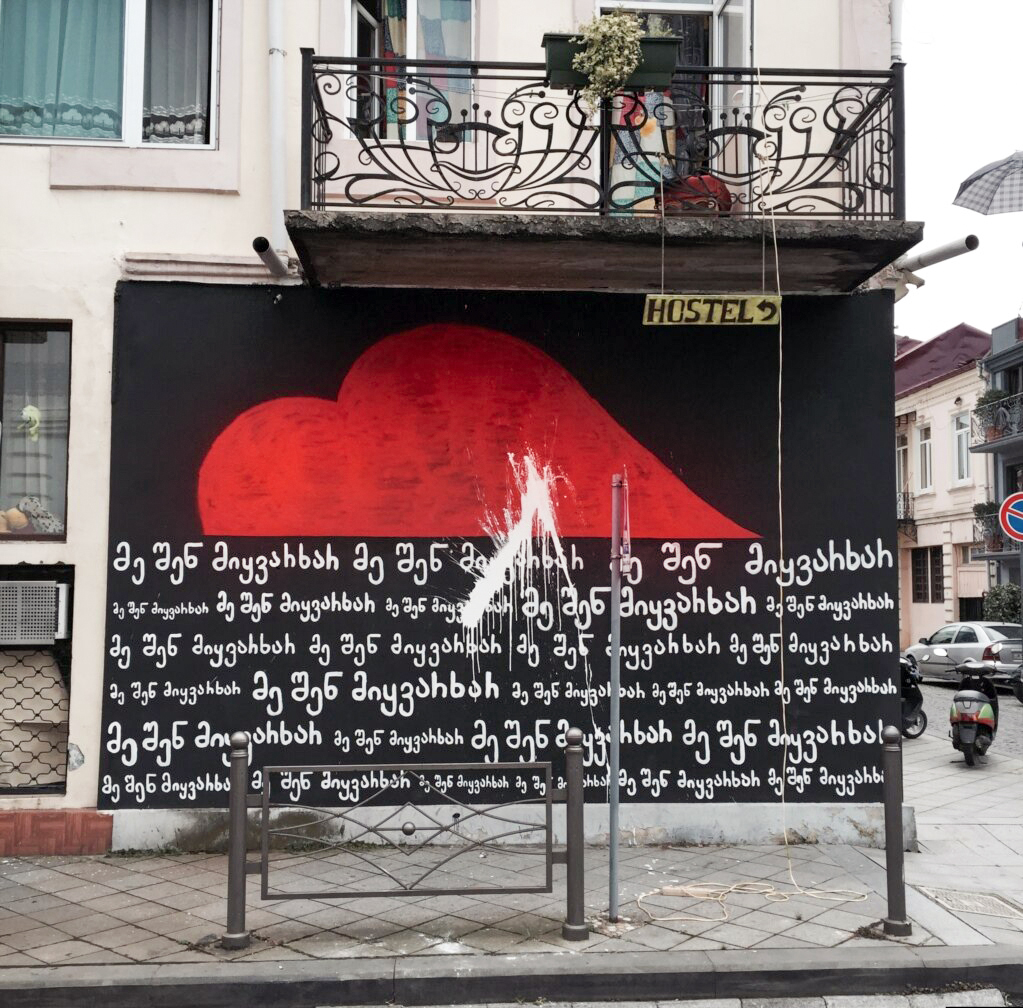 HOSTEL
მე შენ მიყვარხარ მე შენ მიყვარხარ მე შენ მიყვარხარ
მე შენ მიყვარხარ მე შენ მიყვარხარ მე შენ მიყვარხარ მე შენ მიყვარხარ მე შენ მიყვარხარ
მე შენ მიყვარხარ მე შენ მიყვარხარ მე შენ მიყვარხარ მე შენ მიყვარხარ
მე შენ მიყვარხარ მე შენ მიყვარხარ მე შენ მიყვარხარ მე შენ მიყვარხარ მე შენ მიყვარხარ
მე შენ მიყვარხარ მე შენ მიყვარხარ მე შენ მიყვარხარ მე შენ მიყვარხარ
მე შენ მიყვარხარ შენ მიყვარხარ მე შენ მიყვარხარ მე შენ მე შენ მიყვარხარ მე შენ მიყვარხარ